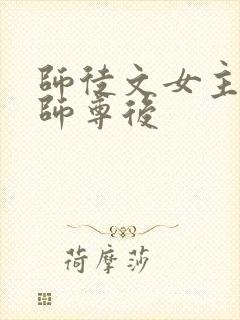 師徒文女主
師尊後
荷摩莎